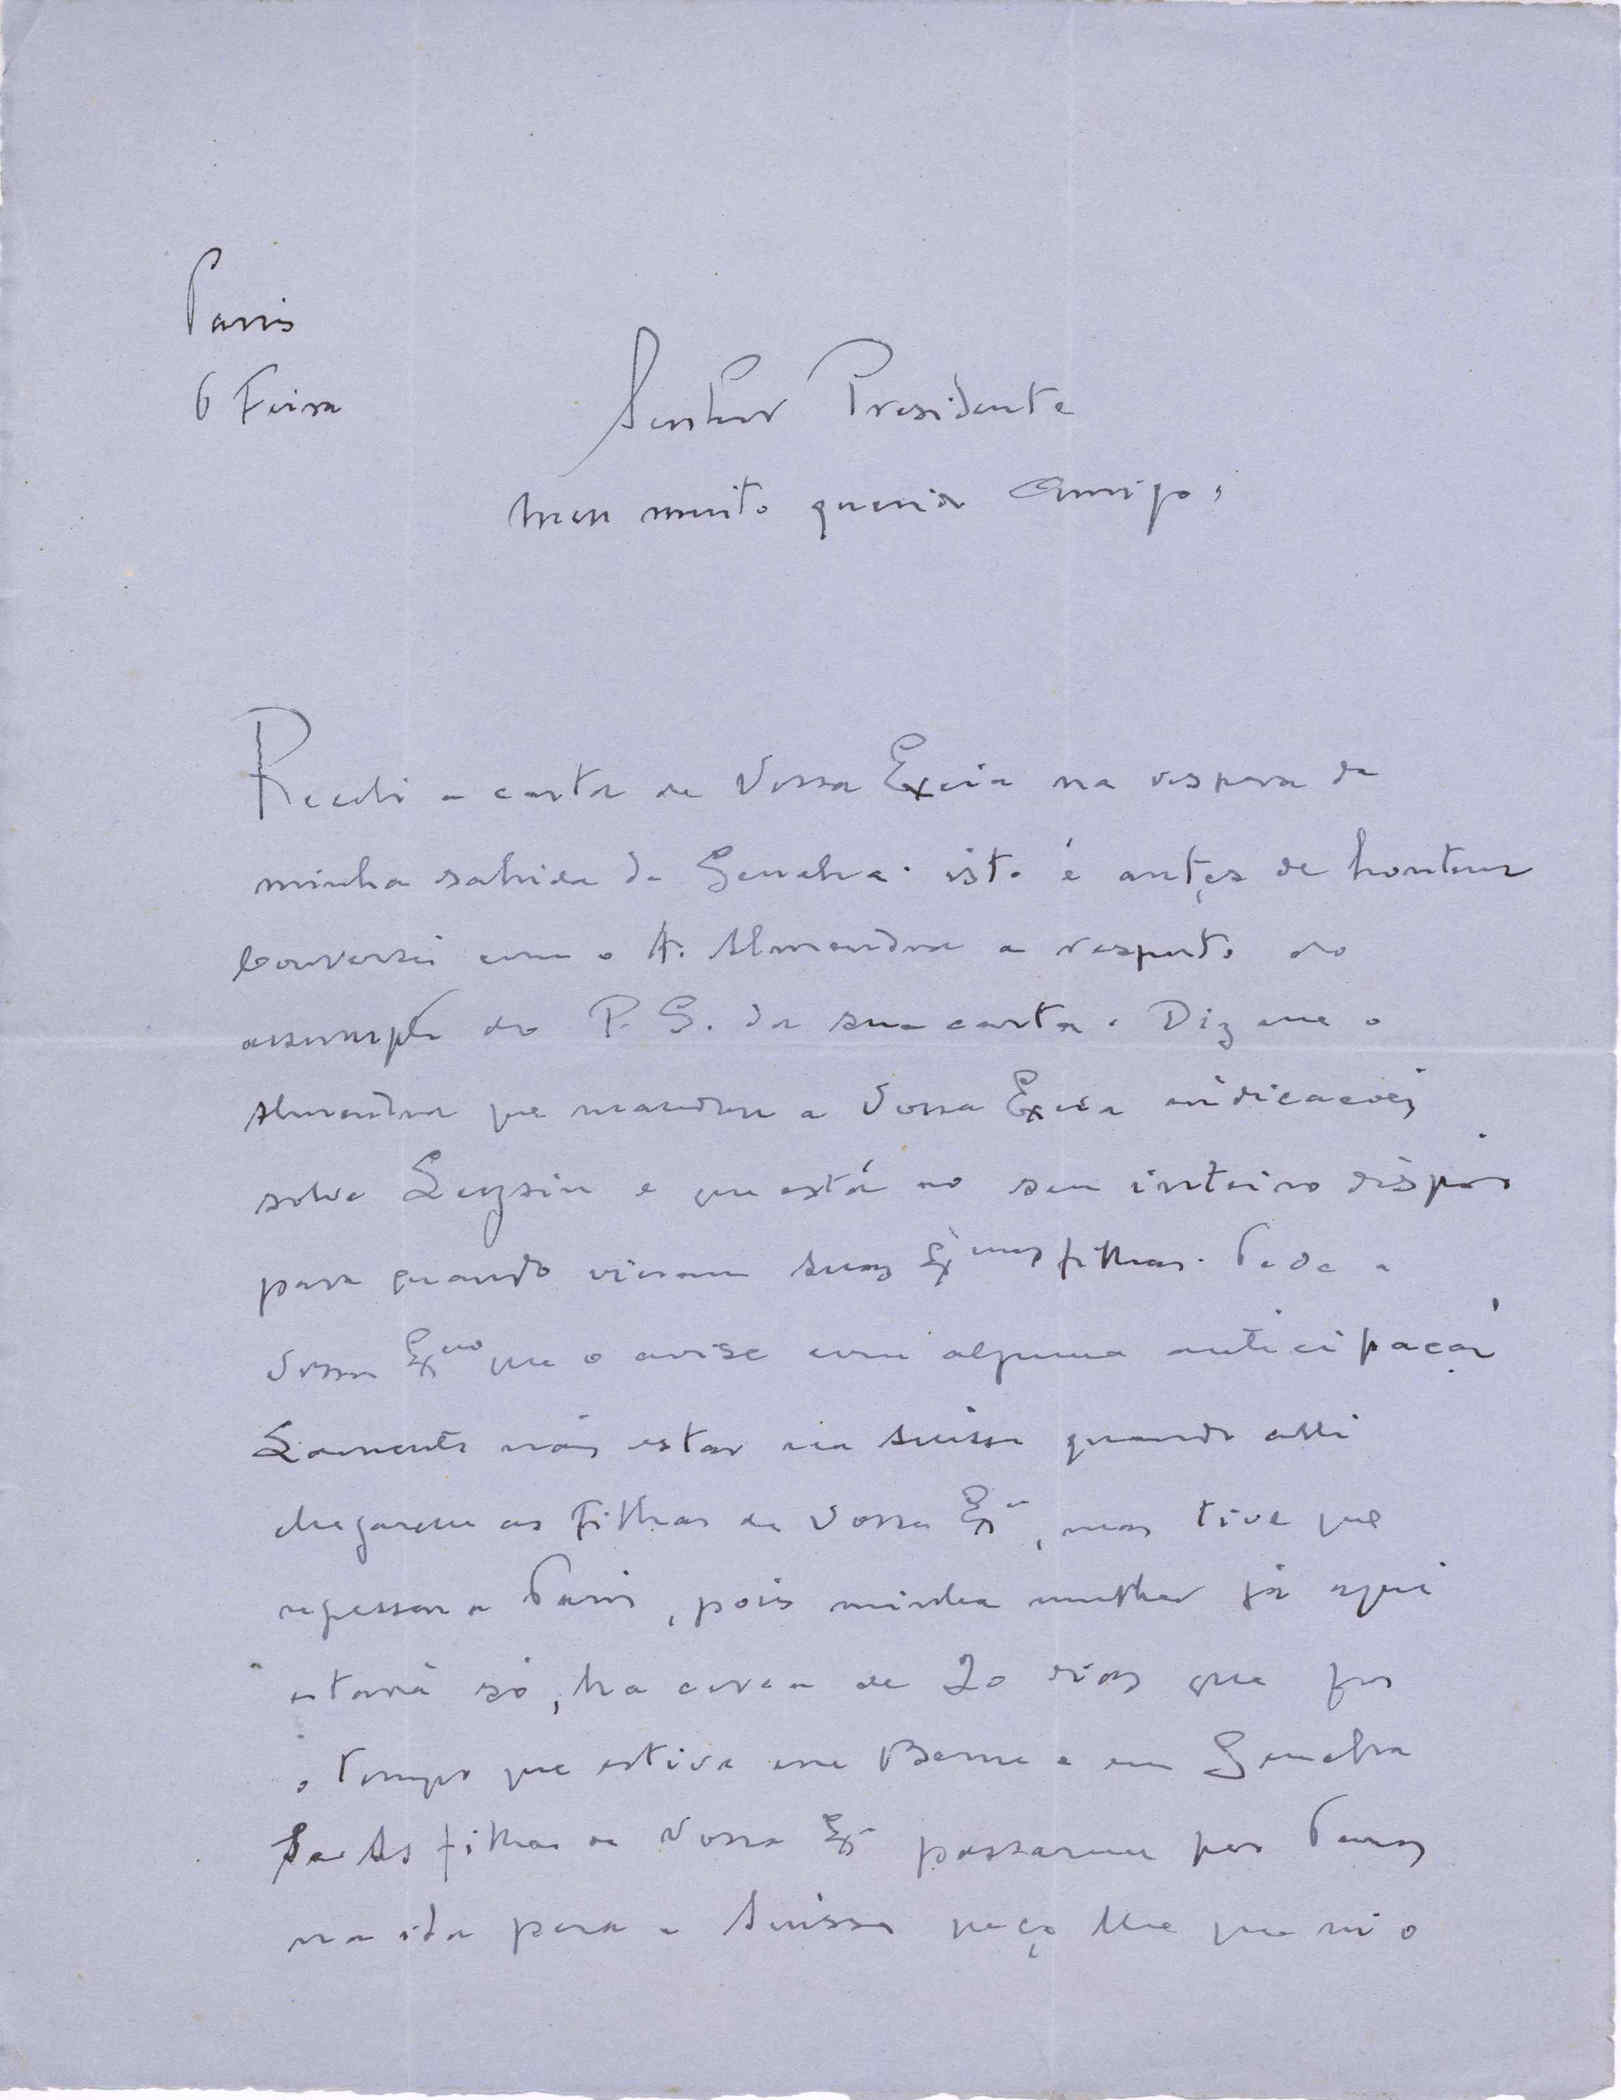 Paris
6 Feira
Senhor Presidente
Meu muito querido Amigo,
Recebi a carta de Vossa Excia na vespera da
minha sahida de Genebra. isto é antes de hontem
Conversei com o A. Almendra a respeito do
assumpto do P. S. da sua carta. Diz me o
Almendra que mandou a Vossa Excia indicações
sobre Leyzin e que está ao seu inteiro dispor
para quando vieram suas Exmas filhas. Pede a
Vossa Excia que o avise com alguma anticipação
Lamento não estar na Suissa quando alli
chegarem as Filhas de Vossa Exa, mas tive que
regressar a Paris, pois minha mulher já aqui
estava só, ha cerca de 20 dias que foi
o tempo que estive em Berne e em Genebra
Se As filhas de Vossa Exa passarem por Paris
na ida para a Suissa peço lhe que m'o